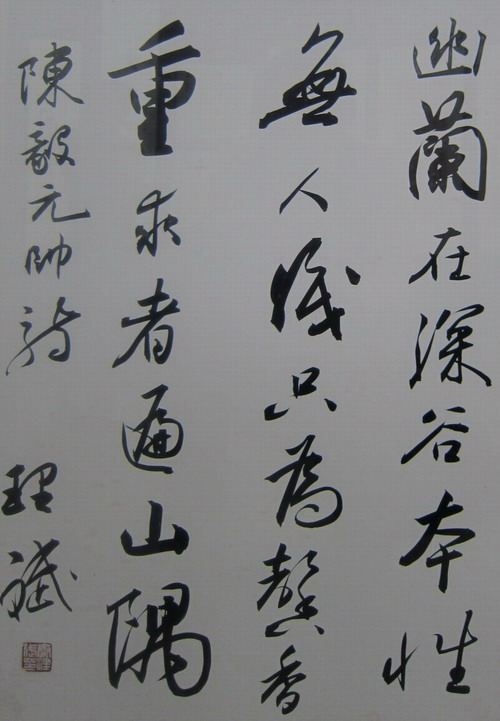 幽蘭在深谷本性
無人識只為馨香
重求者遍山隅
陳毅元帥詩
理斌